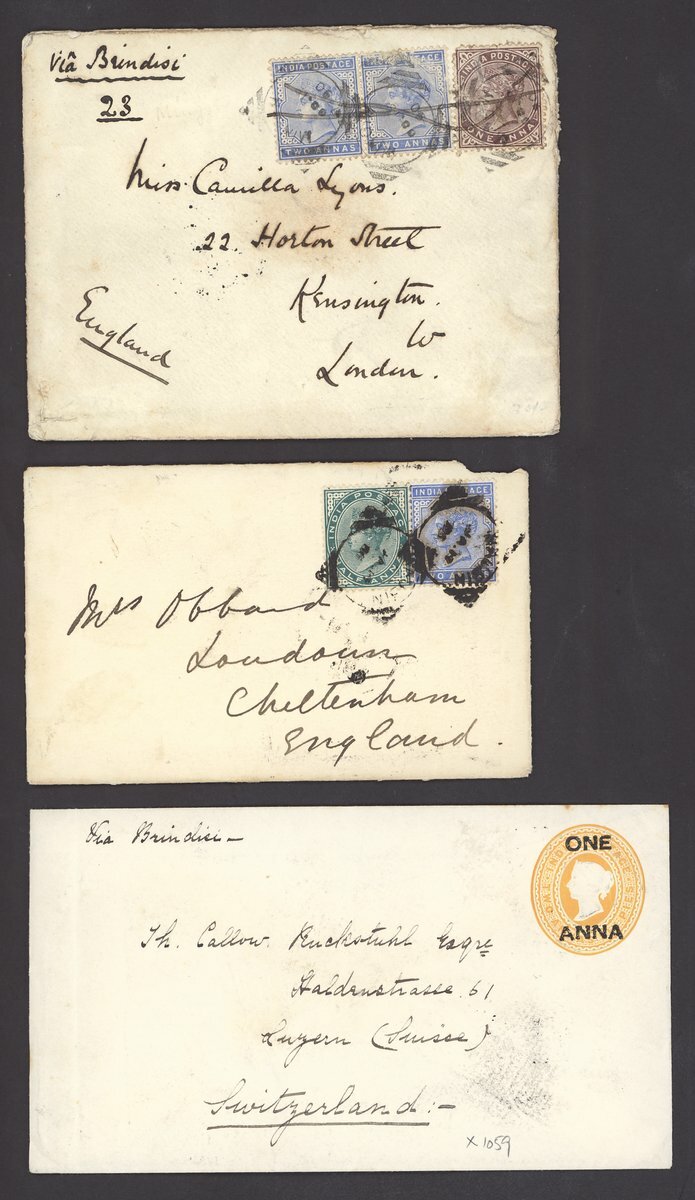 Viâ Brindisi
23
INDIA POSTAGE
TWO ANNAS
INDIA POSTAGE
TWO ANNAS
INDIA POSTAGE
ONE ANNA
Miss Camilla Lyons.
22 Horton Street
Kensington.
W
London.
England
INDIA POSTAGE
HALF ANNA
INDIA POSTAGE
TWO A
Mrs Obbard
Loudoun
Cheltenham
England.
Via Brindisi—
ONE
ANNA
Th. Callow. Ruckstuhl Esqre
Haldenstrasse 61
Luzern (Suisse)
Switzerland:-
x1059